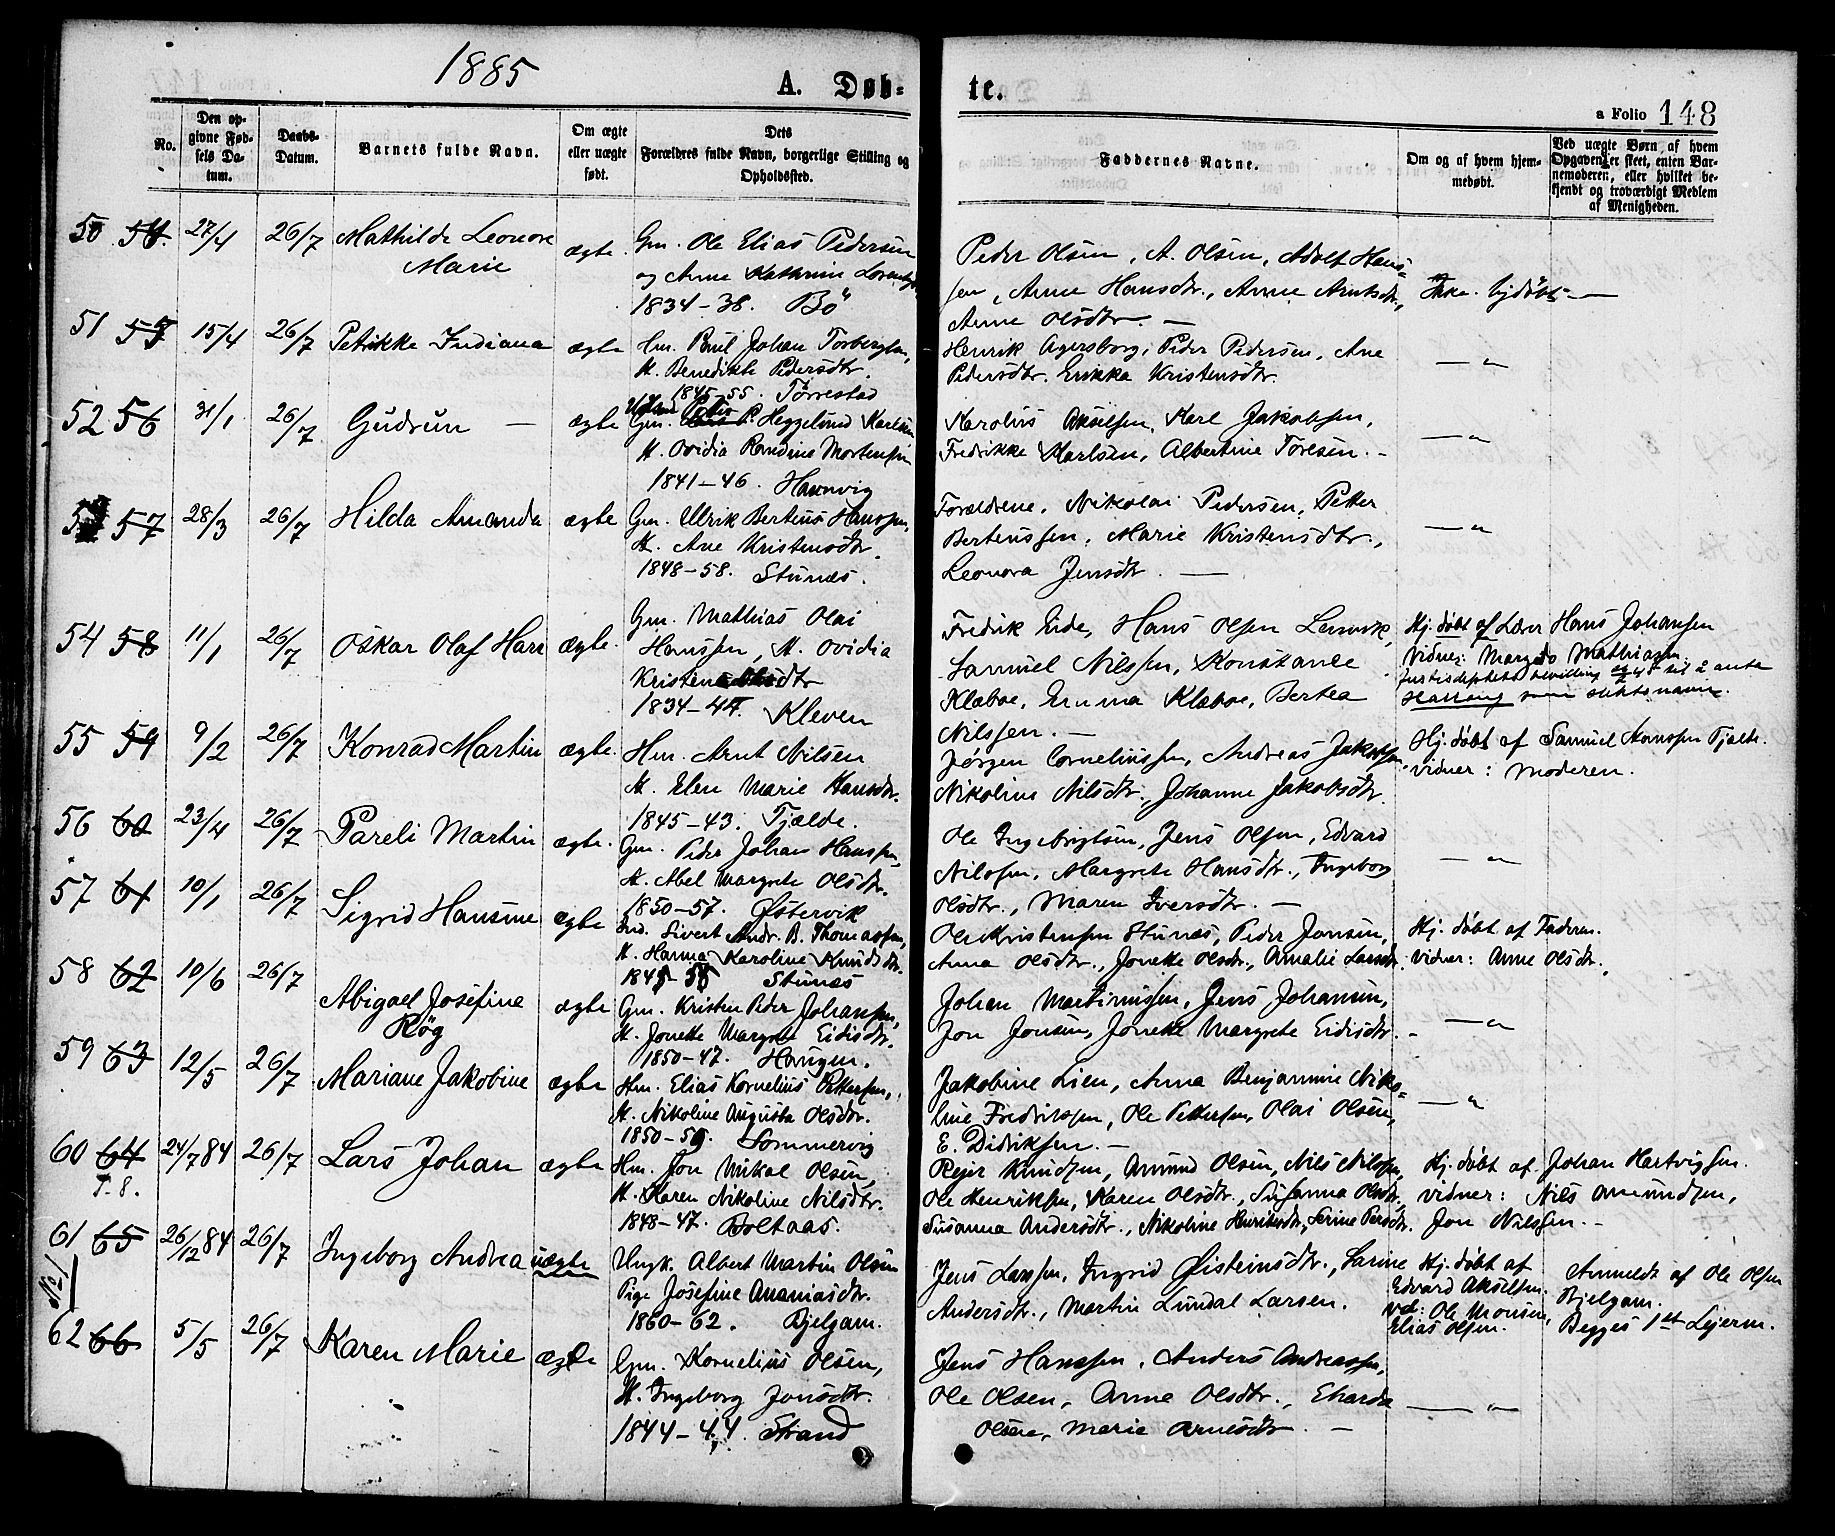 1885
A. Døb-
te.
a Folio 148
No.
Den op-
givne Fød-
sels Da-
tum.
Daabs-
Datum.
Barnets fulde Navn.
Om ægte
eller uægte
født.
Dets
Forældres fulde Navn, borgerlige Stilling og
Opholdssted.
Faddernes Navne.
Om og af hvem hjem-
medøbt.
Ved uægte Børn, af hvem
Opgaven er skeet, enten Bar-
nemoderen, eller hvilket be-
kjendt og troværdigt Medlem
af Menigheden.
50 54. 27/4 26/7 Mathilde Leonore
Marie
ægte.
Gm. Ole Elias Pedersen
og Anne Kathrine
1834-38. Bö
Peder Olsen, A. Olsen, Adolf Hans-
sen, Anne Hansdtr., Anne Arntsdtr.,
Anne Olsdtr. —
Ikke hjdøbt —
51 55 15/4 26/7 Petrikke Indiana ægte
Hm. Paul Johan Torbergsen,
H. Benedikte Pedersdtr.
1845-55. Tørrestad
Henrik Agersborg, Peder Pedersen, Ane
Pedersdtr. Erikka Kristensdtr.
— " —
52 56 31/1 26/7 Gudrun — ægte
Gm. P. Heggelund Karlsen
H. Ovidia Mortensen
1841-46. Havnvig
Karolius Akselsen, Karl Jakobsen,
Fredrikke Karlsen, Albertine Toresen. -
— " —
57 28/3 26/7 Hilda Amanda ægte
Gm. Ulrik Berteus Hanssen,
H. Ane Kristensdtr.
1848-58. Stunes.
Forældrene, Nikolai Pedersen, Petter
Berteussen, Marie Kristensdtr.,
Leonora Jensdtr. —
— " —
54 58 11/1 26/7 Oskar Olaf Harr ægte.
Gm. Mathias Olai
Hanssen, H. Ovidia
Kristensdtr
1834-44. Kleven
Fredrik Eide, Hans Olsen Lenvik,
Samuel Nilssen, Konstance
Klæboe, Emma Klæboe, Bertea
Nilssen. —
Hj. døbt af Lærer Hans Johansen
Vidner: Margrete Mathiasen.
55 59 9/2 26/7 Konrad Martin ægte.
Hm. Arnt Nilsen
H. Elen Marie Hansdtr.
1845-43. Tjælde.
Jørgen Corneliussen, Andreas Jakobsen
Nikoline Nilsdtr. Johanne Jakobsdtr.
Hj. døbt af Samuel Hanssen Tjælde.
vidner: Moderen.
56 60 23/4 26/7 Pareli Martin ægte.
Gm. Peder Johan Hanssen,
H. Abel Margrete Olsdtr.
1850-57. Østervik
Ole Ingebrigtsen, Jens Olsen, Edvard
Nilssen, Margrete Hansdtr., Ingeborg
Olsdtr., Maren Iversdtr. —
— " —
57 61 10/1 26/7 Sigrid Hansine ægte
Ind. Sivert Andr. B. Thomassen,
H. Hanna Karoline Knudsdtr.
Stunes
Ole Kristensen Stunes, Peder Jonsen,
Anna Olsdtr., Jonette Olsdtr., Amalie Larsdtr.
Hj. døbt af Faderen.
vidner: Anne Olsdtr.
58 62 10/6 26/7 Abigael Josefine
Røg
ægte
Gm. Kristen Peder Johanssen,
H. Jonette Margrete Eidisdtr.
1850-47. Haugen.
Johan Martinussen, Jens Johansen,
Jon Jonsen, Jonette Margrete Eidisdtr. -
— " —
59 63 12/5 26/7 Mariane Jakobine ægte
Hm. Elias Kornelius Pettersen,
H. Nikoline Augusta Olsdtr.
Sommervig
Jakobine Lien, Anna Benjamine Niko-
line Fredriksen, Ole Pettersen, Olai Olsen,
E. Didriksen. —
— " —
60 64 24/7 84 26/7 Lars Johan ægte
T. 8.
Hm. Jon Mikal Olsen,
H. Karen Nikoline Nilsdtr.
1848-47. Boltaas.
Rejer Knudsen, Amund Olsen, Nils Nilssen,
Ole Henriksen, Karen Olsdtr., Susanna Olsdtr.,
Susanna Andersdtr., Nikoline Henriksdtr., Serine Persdtr.
Hj. døbt af Johan Hartvigsen.
vidner: Nils Amundsen,
Jon Nilssen. -
61 65 26/12 84 26/7 Ingeborg Andrea uægte
No 1
Ungk. Albert Martin Olsen
Pige Josefine Ananiasdtr.
1860-62. Bjelgam.
Jens Larssen, Ingrid Øisteinsdtr., Sarine
Andersdtr., Martin Lundal Larsen.
Hj. døbt af
Edvard Akselsen.
vid: Ole Monsen,
Elias Olsen.
Anmeldt af Ole Olsen
Bjelgam.
Begges 1st Lejerm.
62 66 5/5 26/7 Karen Marie ægte
Gm. Kornelius Olsen,
H. Ingeborg Jonsdtr.
1844-44. Strand
Jens Hanssen, Anders Andreassen,
Ole Olsen, Anne Olsdtr.,
Olsen, Marie Arnesdtr. —
— " —